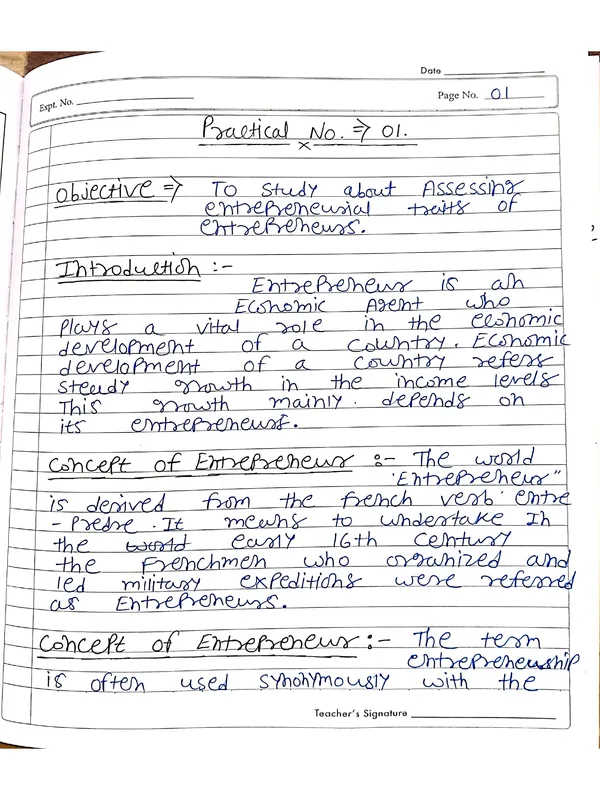 Date
Expt. No.
Page No. 01
Practical No. => 01.
×
Objective => To study about Assessing
entrepreneurial traits of
entrepreneurs.
Introduction :-
Entrepreneur is an
Economic Agent who
plays a vital role in the economic
development of a country. Economic
development of a country refers
steady growth in the income levels
This growth mainly. depends on
its entrepreneurs.
Concept of Entrepreneur :- The world
'Entrepreneur"
is derived from the french verb 'entre
- Predre. It means to undertake In
the world early 16th century
the Frenchmen who organized and
led military expeditions were referred
as Entrepreneurs.
Concept of Entrepreneur :- The term
entrepreneuship
is often used synonymously with the
Teacher's Signature